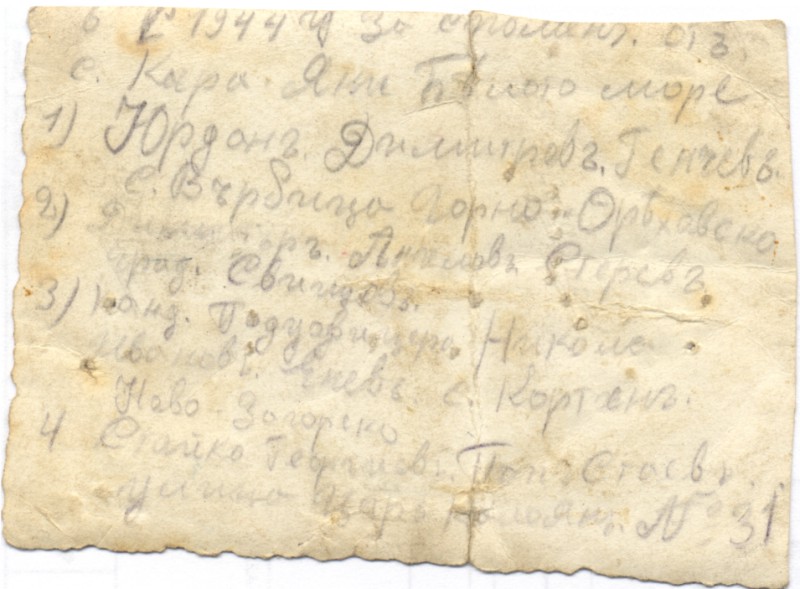 6 I 1944 г За спомен. отъ
с. Кара. Яни Бѣлото море
1) Юрданъ. Димитровъ. Генчевъ.
с. Върбица Горно-Орѣховско
2) Димитъръ. Ангеловъ Стеревъ
град. Свищовъ.
3) Канд. Подуофицеръ Никола
Ивановъ. Енев. с. Кортенъ.
Ново-Загорско
4 Стайко Георгиевъ. Попъ Стоевъ.
улица Царь Калоянъ. № 31